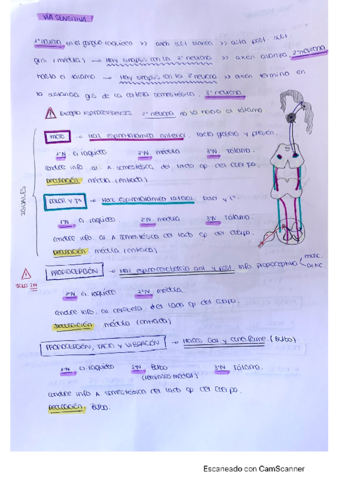 VÍA SENSITIVA
1ª neurona en el ganglio raquídeo >> axón
gris (médula) → Haz sinapsis con la 2ª neurona >> axón 2ª neurona
hasta el tálamo → Haz sinapsis con la 3ª neurona >> axón termina en
la sustancia gris de la corteza somestésica. 3ª neurona
Excepto 2ª neurona no va hacia el tálamo
TACTO → Haz espinotalámico anterior tacto grosero y presión.
1ªN G. raquídeo 2ªN médula 3ªN Tálamo.
conduce info. al A. somestésica del lado op. del cuerpo.
Decusación: médula (entrada)
DOLOR Y Tª → Haz espinotalámico lateral dolor y Tª
1ªN G. raquídeo 2ªN médula 3ªN Tálamo.
conduce info. al A. somestésica del lado op. del cuerpo.
Decusación médula (entrada)
PROPIOCEPCIÓN → Haz espinocerebeloso ant y post. info propioceptiva
SOLO 2N
1ªN G. raquídeo 2ªN médula.
conduce info. al cerebelo del lado del cuerpo.
Decusación médula (entrada)
PROPIOCEPCIÓN, TACTO Y VIBRACIÓN → Haces Goll y cuneiforme (Bulbo)
1ªN G. raquídeo 2ªN Bulbo 3ªN Tálamo.
conduce info A somestésica del lado op del cuerpo.
Decusación: Bulbo.
Escaneado con CamScanner